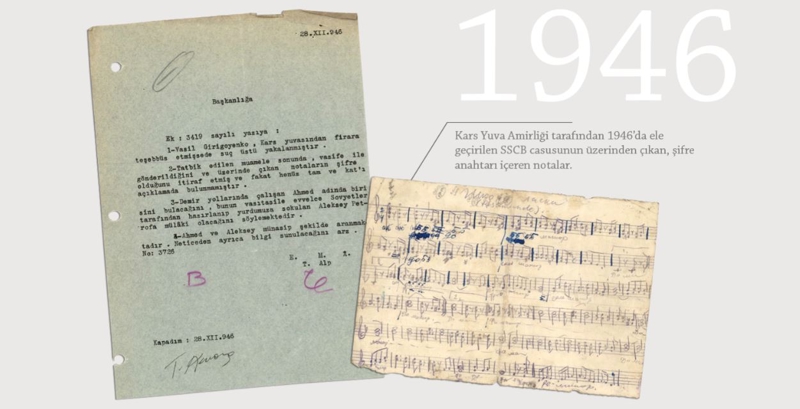 1946
Kars Yuva Amirliği tarafından 1946'da ele
geçirilen SSCB casusunun üzerinden çıkan, şifre
anahtarı içeren notalar.
28.XII.946
Başkanlığa
Ek : 3419 sayılı yazıya :
1-Vasil Girigoyenko, Kars yuvasından firara
teşebbüs etmişsede suç üstü yakalanmıştır.
2-Tatbik edilen muamele sonunda, vazife ile
gönderildiğini ve üzerinde çıkan notaların şifre
olduğunu itiraf etmiş ve fakat henüz tam ve kat'i
açıklamada bulunmamıştır.
3-Demir yollarında çalışan Ahmed adında biri
sini bulacağını, bunun vasıtasile evvelce Sovyetler
tarafından hazırlanıp yurdumuza sokulan Aleksey Pet-
rofa mülâki olacağını söylemektedir.
4-Ahmed ve Aleksey münasip şekilde aranmak
tadır. Neticeden ayrıca bilgi sunulacağını arz .
No: 3726
T. Alp
B
Kapadım : 28.XII.946